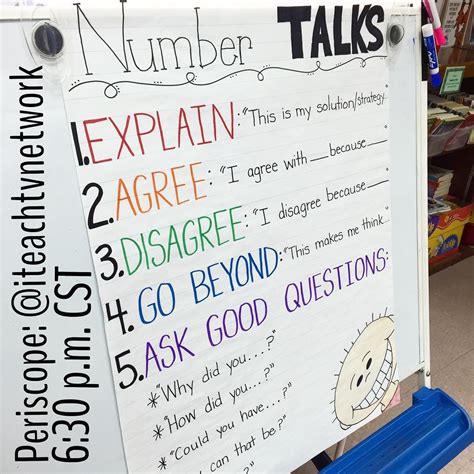 Number TALKS
1. EXPLAIN: "This is my solution/strategy...
2. AGREE: "I agree with ___ because ___
3. DISAGREE: "I disagree because ___
4. GO BEYOND: "This makes me think...
5. ASK GOOD QUESTIONS:
*"Why did you...?"
*"How did you...?"
*"Could you have...?"
can that be?"
Periscope: @iteachtvnetwork
6:30 p.m. CST